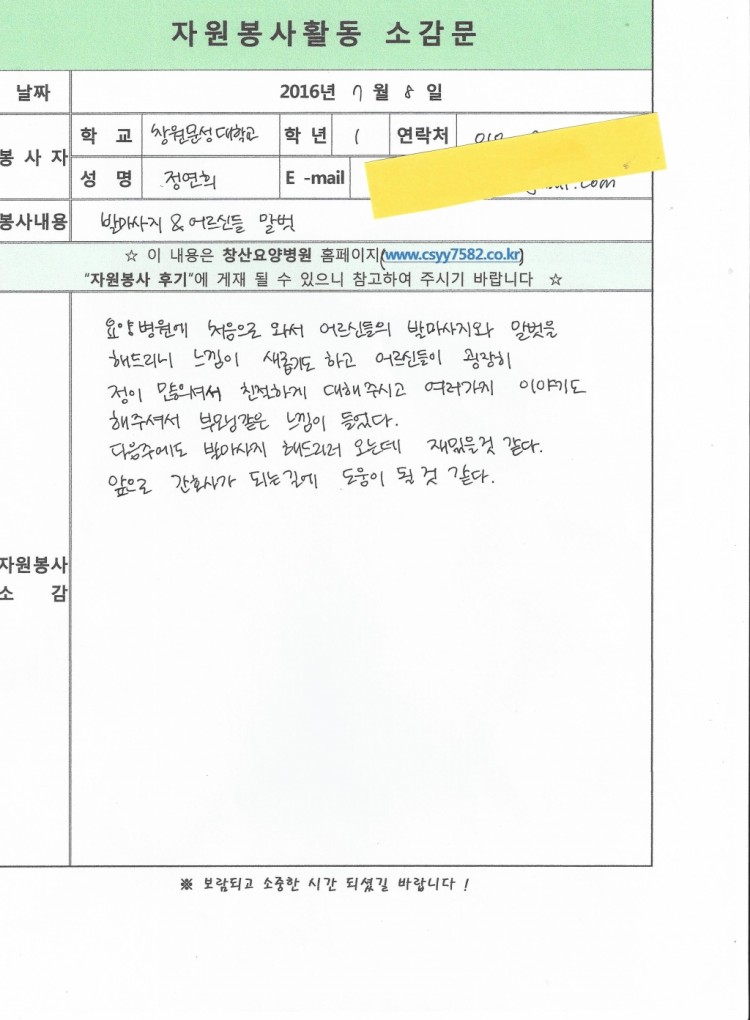 자원봉사활동 소감문
날짜 2016년 7 월 8 일
봉 사 자
학 교 창원문성대학교 학 년 1 연락처
성 명 정연희 E -mail
봉사내용 발마사지 & 어르신들 말벗
☆ 이 내용은 창산요양병원 홈페이지(www.csyy7582.co.kr)
"자원봉사 후기"에 게재 될 수 있으니 참고하여 주시기 바랍니다 ☆
요양병원에 처음으로 와서 어르신들의 발마사지와 말벗을
해드리니 느낌이 새롭기도 하고 어르신들이 굉장히
정이 많으셔서 친절하게 대해주시고 여러가지 이야기도
해주셔서 부모님같은 느낌이 들었다.
다음주에도 발마사지 해드리러 오는데 재밌을것 같다.
앞으로 간호사가 되는길에 도움이 될 것 같다.
자원봉사
소 감
※ 보람되고 소중한 시간 되셨길 바랍니다 !